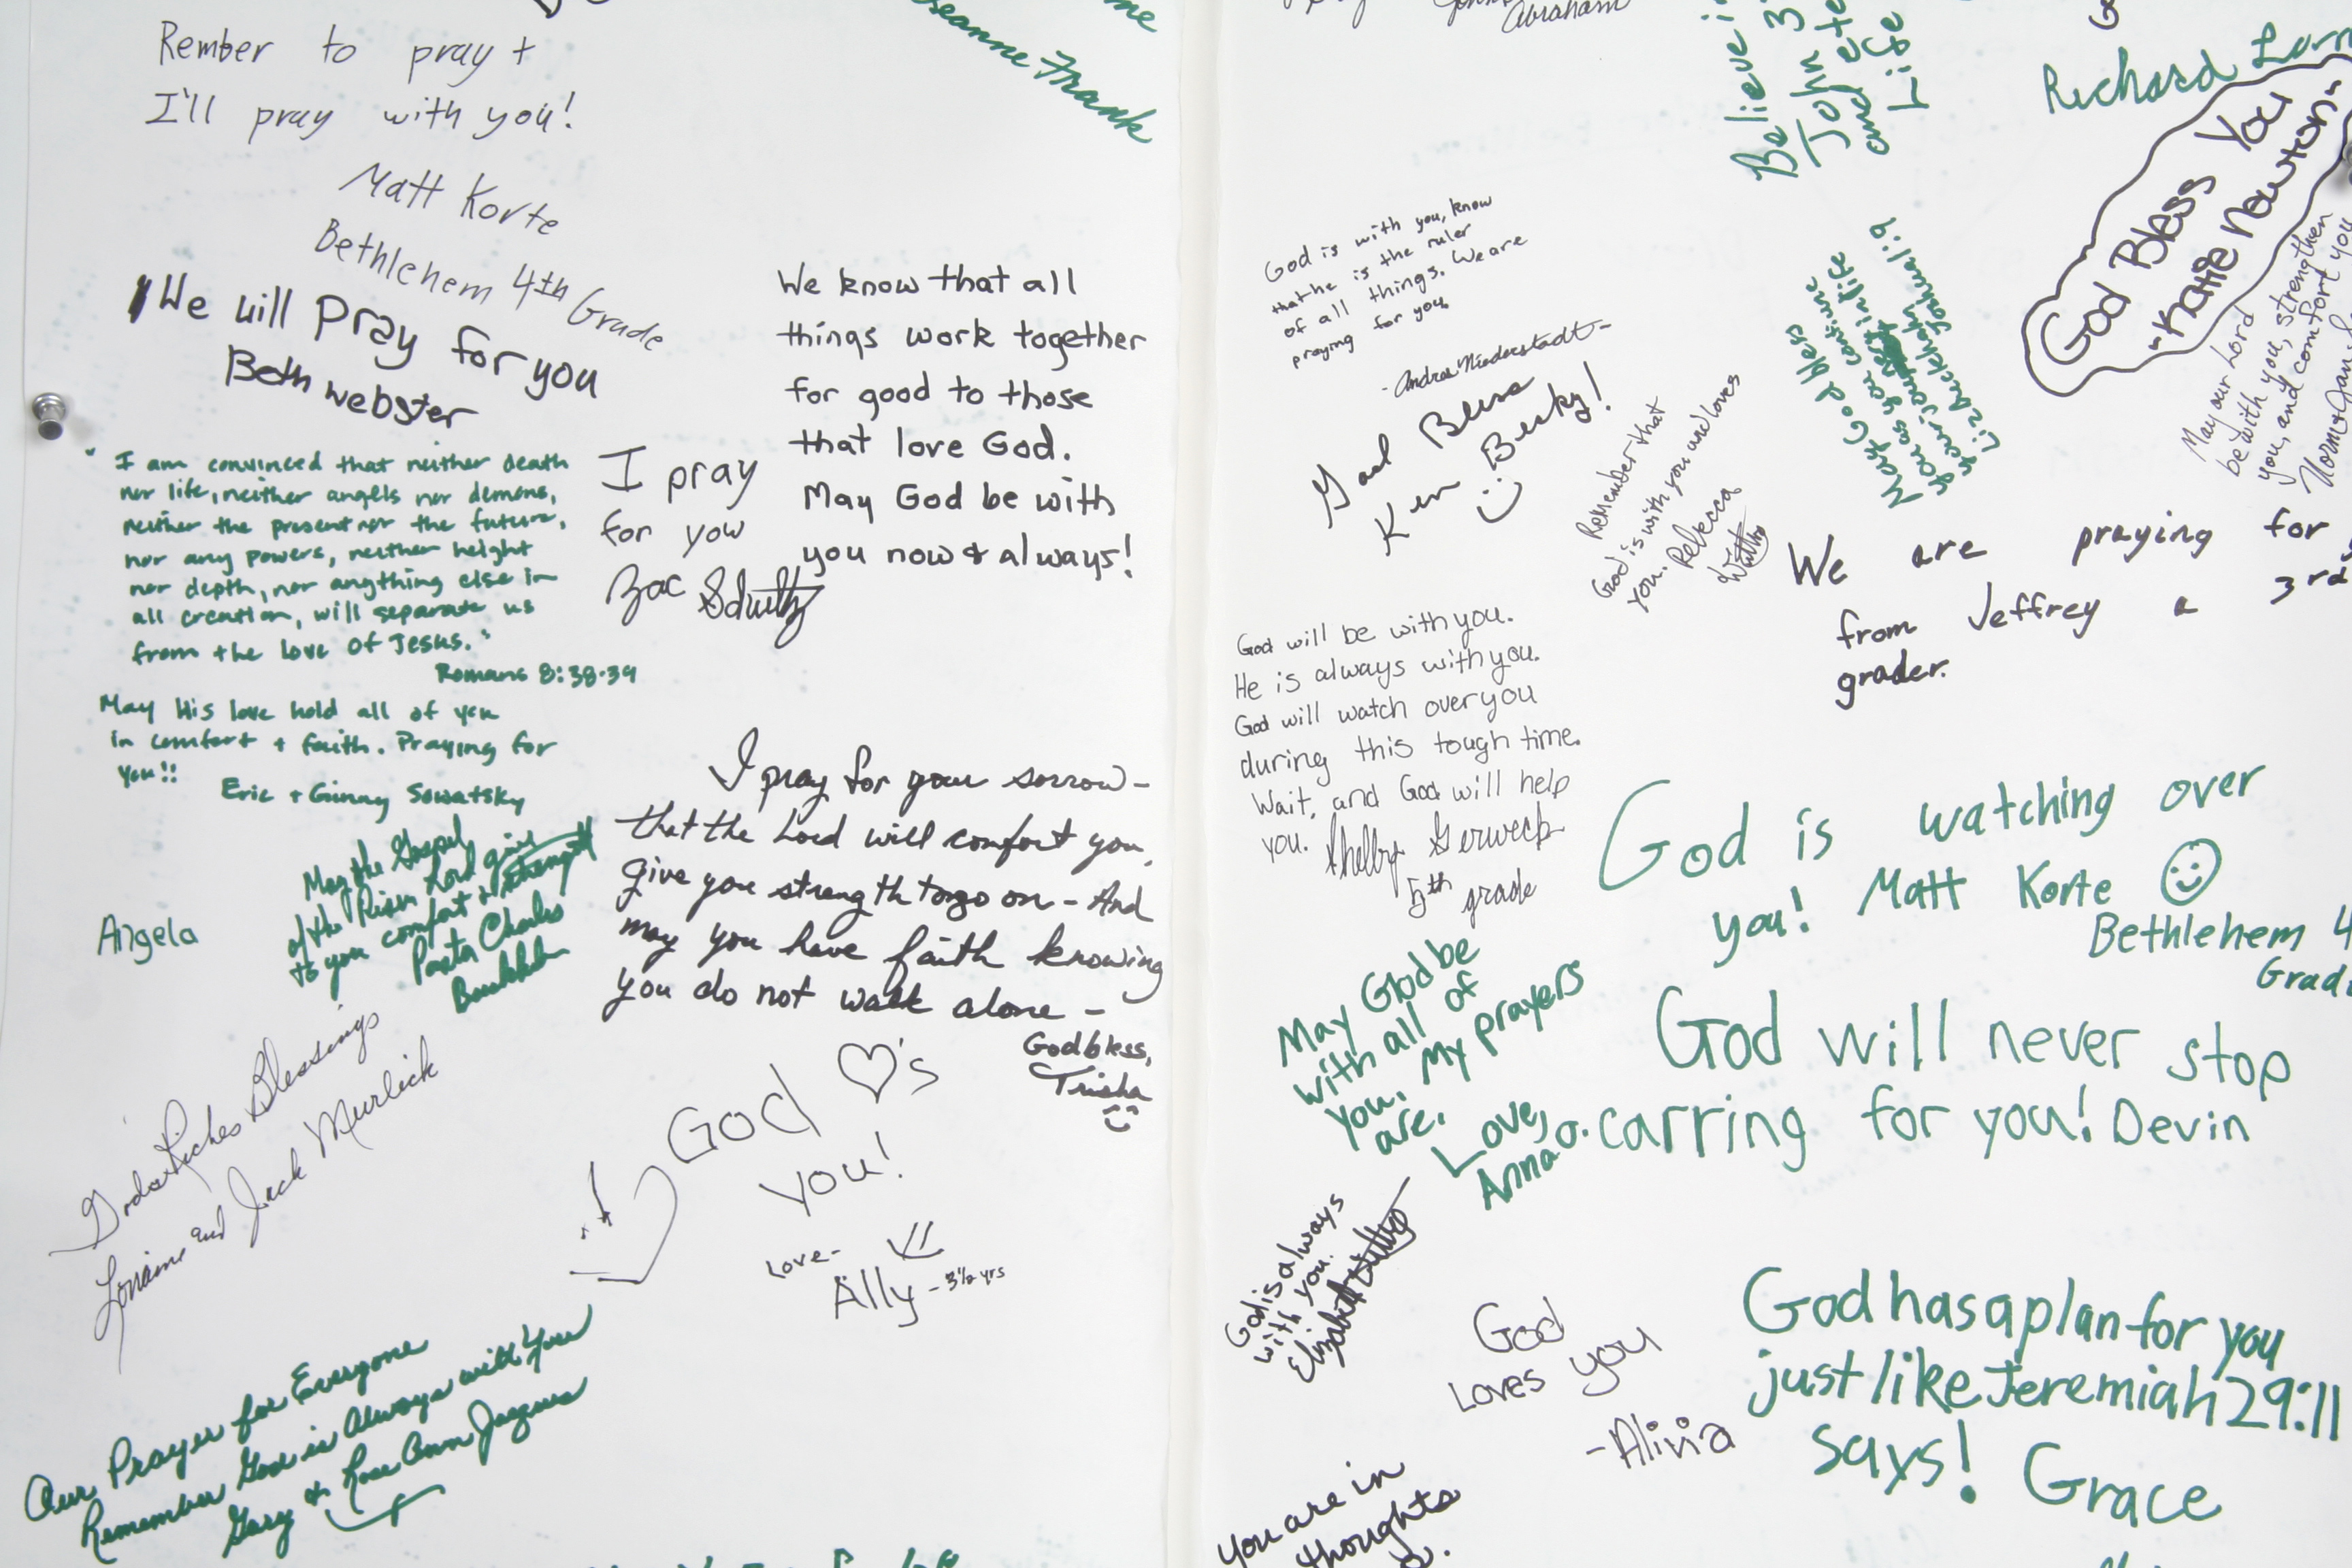 Jeanne Frank
Rember to pray +
I'll pray with you!
Matt Korte
Bethlehem 4th Grade
We will Pray for you
Beth Webster
"I am convinced that neither death
nor life, neither angels nor demons,
neither the present nor the future,
nor any powers, neither height
nor depth, nor anything else in
all creation, will separate us
from the love of Jesus."
Romans 8:38-39
May His love hold all of you
in comfort + faith. Praying for
you!!
Eric + Ginny Sowatsky
We know that all
things work together
for good to those
that love God.
May God be with
you now & always!
I pray
for you
Zac
I pray for your sorrow-
that the Lord will comfort you,
give you strength to go on - And
may you have faith knowing
you do not walk alone -
Godbless,
Trisha
May the Gospel
of the Risen Lord give
to you comfort + strength
Pastor Charles
Angela
God's Riches Blessings
Lorraine and Jack Murlick
God ♡'s
you!
Love-
Ally - 3½ yrs
Our Prayer for Everyone
Remember God is Always with You
Gary & Rose Ann Jacques
Abraham
Believe
John 3
and
Life
Richard
God Bless You
"Katie Nowton"
God is with you, know
that he is the ruler
of all things. We are
praying for you.
-Andrea Niederstadt-
God Bless
Ken Besky!
Remember that
God is with you and loves
you. Rebecca
May God bless
you as you continue
your journey in life
May our Lord
be with you, strengthen
you, and comfort you
We are praying for
from Jeffrey a 3rd
grader.
God will be with you.
He is always with you.
God will watch over you
during this tough time.
Wait, and God will help
you. Shelby Gerweck
5th grade
God is watching over
you! Matt Korte
Bethlehem 4
Grad
May God be
with all of
you. My prayers
are.
Love,
Anna O.
God will never stop
carring for you! Devin
God is always
with you.
Elizabeth
God
Loves you
-Alivia
God has a plan for you
just like Jeremiah 29:11
says! Grace
You are in
thoughts